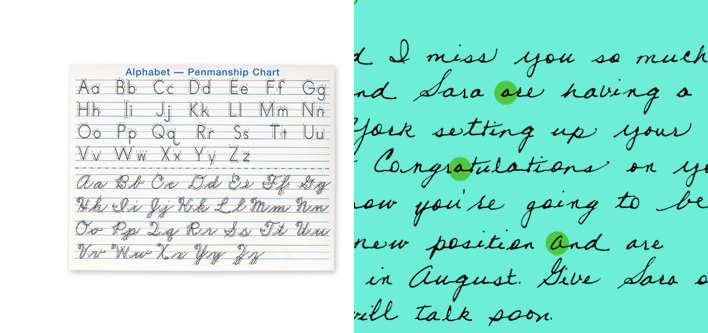 Alphabet — Penmanship Chart
Aa Bb Cc Dd Ee Ff Gg
Hh Ii Jj Kk Ll Mm Nn
Oo Pp Qq Rr Ss Tt Uu
Vv Ww Xx Yy Zz
Aa Bb Cc Dd Ee Ff Gg
Hh Ii Jj Kk Ll Mm Nn
Oo Pp Qq Rr Ss Tt Uu
Vv Ww Xx Yy Zz
I miss you so much
Sara are having a
York setting up your
Congratulations on
you're going to be
new position and are
in August. Give Sara
will talk soon.